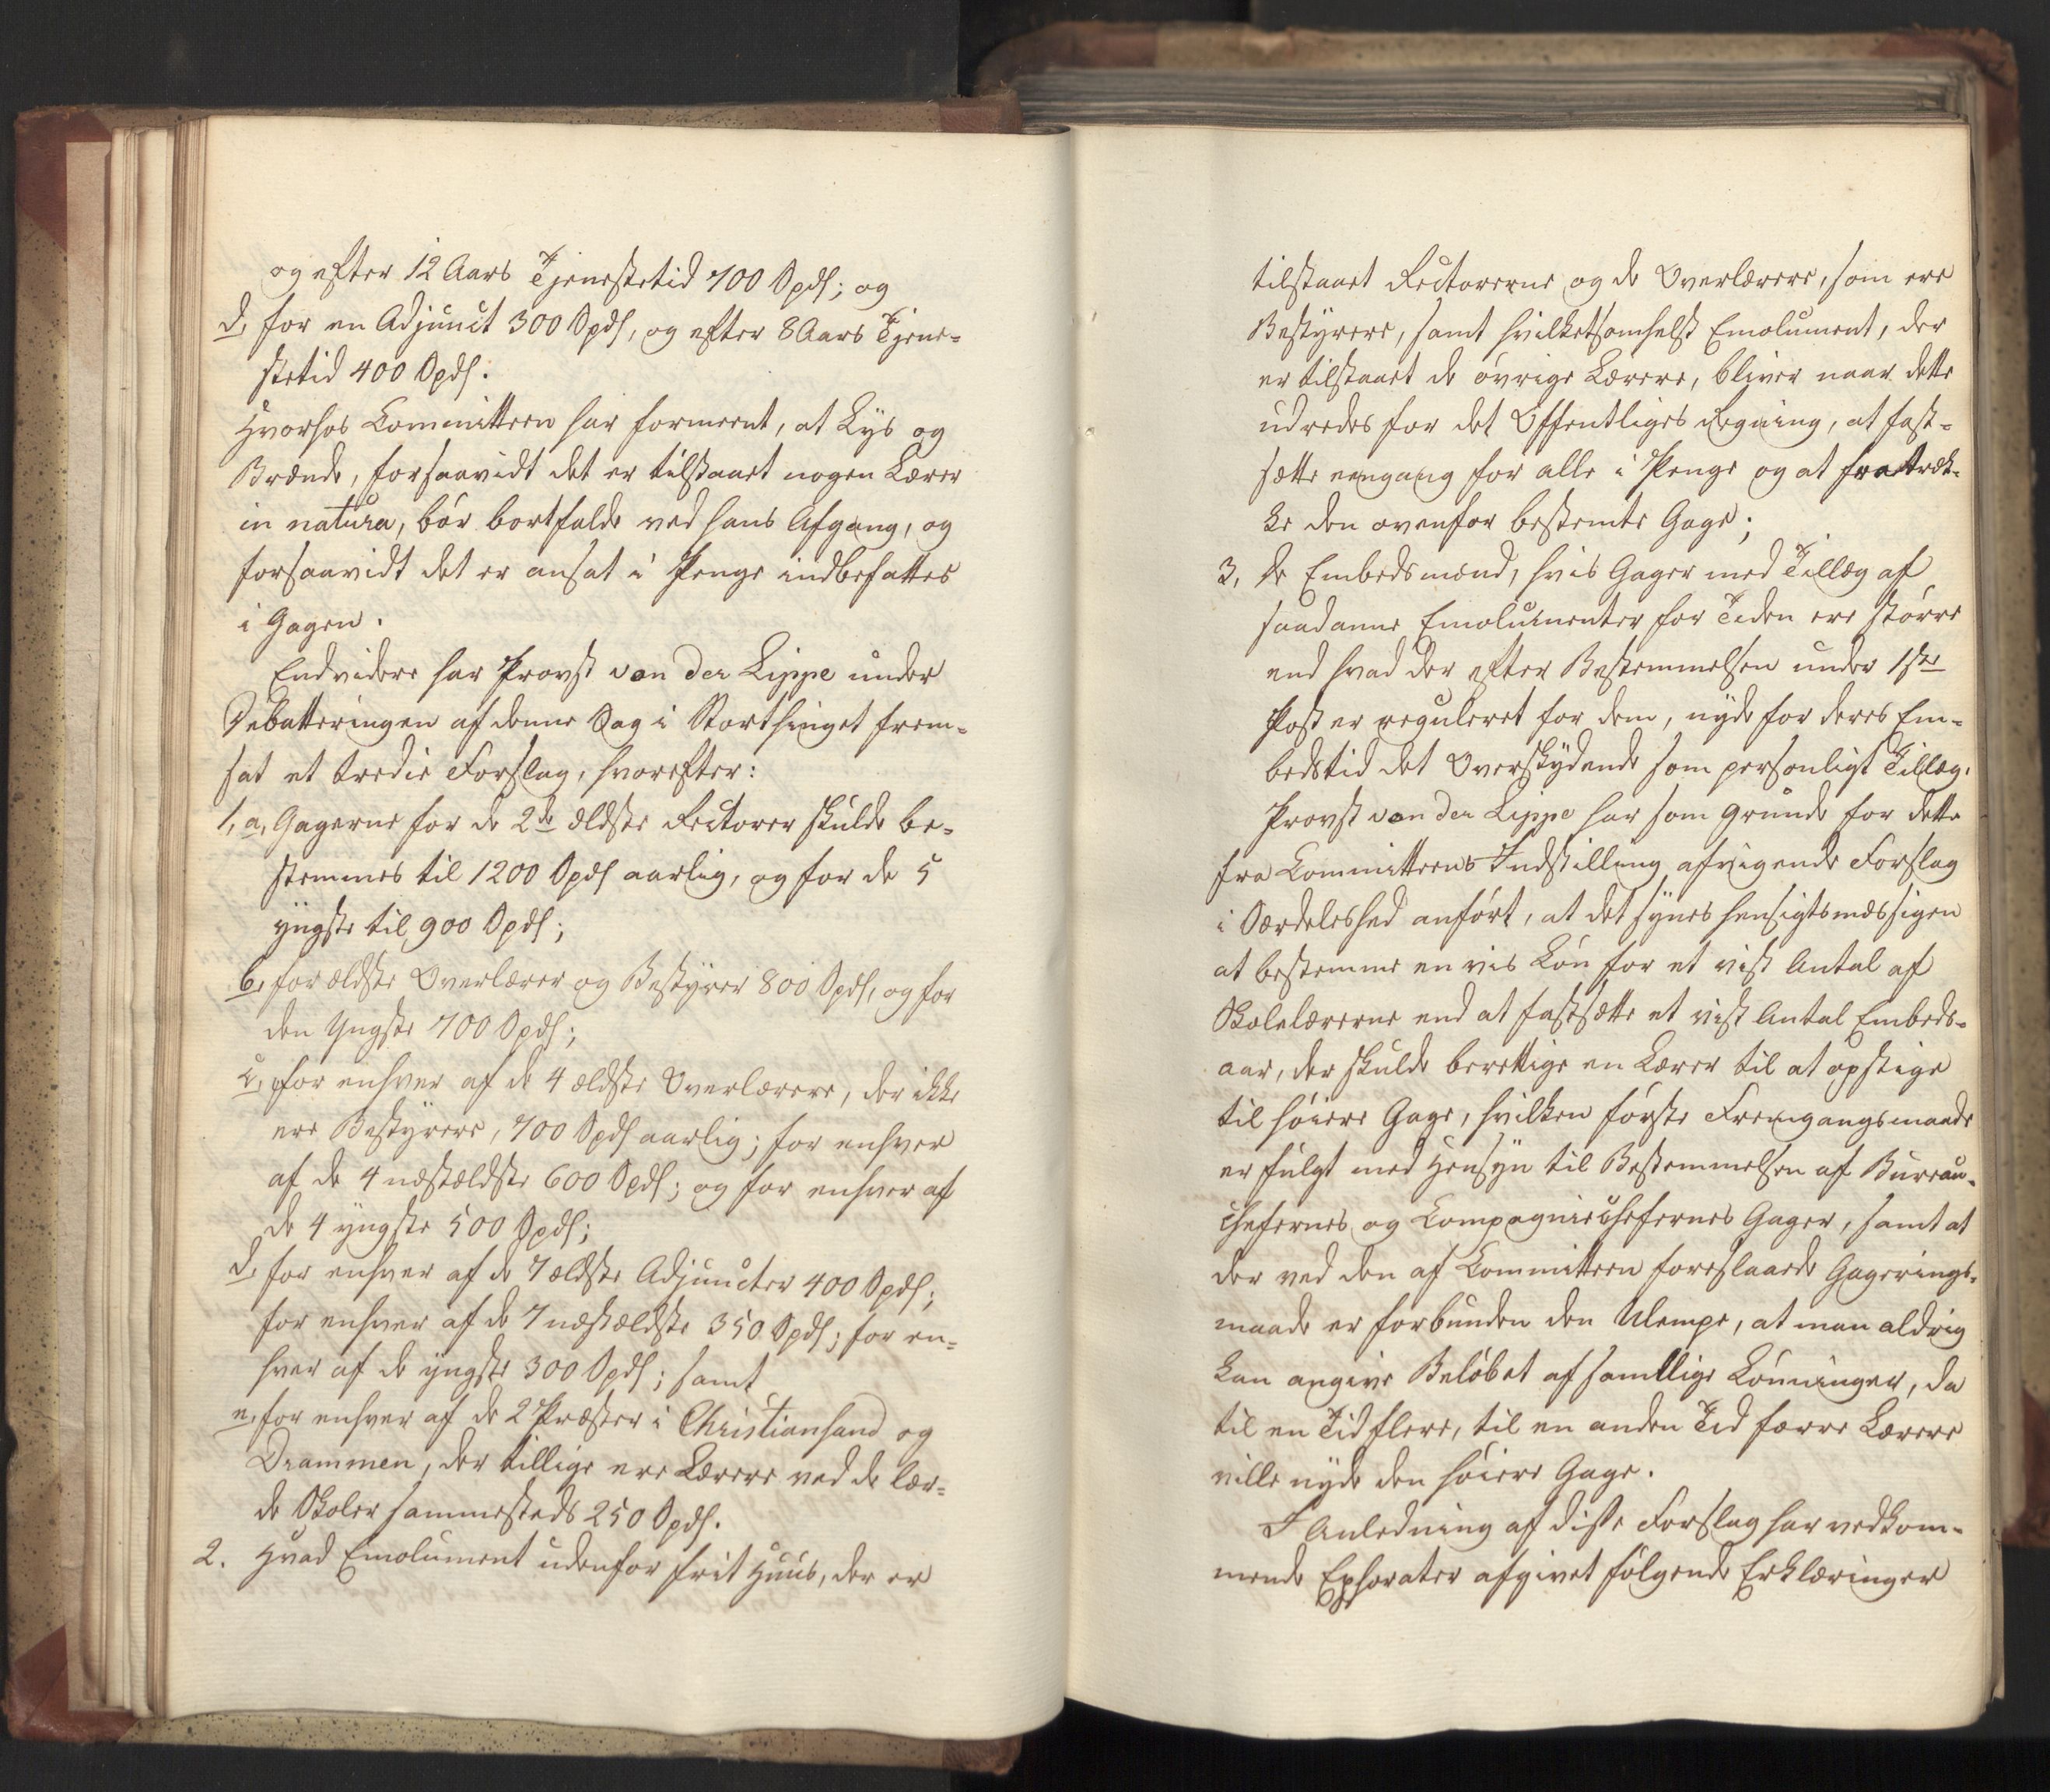 og efter 12 Aars Tjenestetid 700 Spdl; og
d, for en Adjunct 300 Spdl, og efter 8 Aars Tjene-
stetid 400 Spdl.
Hvorhos Committeen har formeent, at Lys og
Brænde, forsaavidt det er tilstaaet nogen Lærer
in natura, bör bortfalde ved hans Afgang, og
forsaavidt det er ansat i Penge indbefattes
i Gagen.
Endvidere har Provst von der Lippe under
Debatteringen af denne Sag i Storthinget frem-
sat et tredie Forslag, hvorefter:
1, a, Gagerne for de 2de ældste Rectorer skulde be-
stemmes til 1200 Spdl aarlig, og for de 5
yngste til 900 Spdl;
b, for ældste Overlærer og Bestyrer 800 Spdl, og for
den Yngste 700 Spdl;
c, for enhver af de 4 ældste Overlærere, der ikke
ere Bestyrere, 700 Spdl aarlig; for enhver
af de 4 næstældste 600 Spdl; og for enhver af
de 4 yngste 500 Spdl;
d, for enhver af de 7 ældste Adjuncter 400 Spdl;
for enhver af de 7 næstældste 350 Spdl; for en-
hver af de yngste 300 Spdl; samt
e, for enhver af de 2 Præster i Christiansand og
Drammen, der tillige ere Lærere ved de lær-
de Skoler sammesteds 250 Spdl.
2. Hvad Emolument udenfor frit Huus, der er
tilstaaet Rectorerne og de Overlærere, som ere
Bestyrere, samt hvilketsomhelst Emolument, der
er tilstaaet de övrige Lærere, bliver naar dette
udredes for det Offentliges Regning, at fast-
sætte eengang for alle i Penge og at fratræk-
ke den ovenfor bestemte Gage;
3, De Embedsmænd, hvis Gager med Tillæg af
saadanne Emolumenter for Tiden ere større
end hvad der efter Bestemmelsen under 1ste
Post er reguleret for dem, nyde for deres Em-
bedstid det Overskydende som personligt Tillæg.
Provst von der Lippe har som Grunde for dette
fra Committeens Indstilling afvigende Forslag
i Særdeleshed anfört, at det synes hensigtsmæssigen
at bestemme en vis Lön for et vist Antal af
Skolelærerne end at fastsætte et vist Antal Embeds-
aar, der skulde berettige en Lærer til at opstige
til höiere Gage, hvilken förste Fremgangsmaade
er fulgt med Hensyn til Bestemmelsen af Bureau-
chefernes og Compagniechefernes Gager, samt at
der ved den af Committeen foreslaaede Gagerings-
maade er forbunden den Ulempe, at man aldrig
kan angive Belöbet af samtlige Lönninger, da
til en Tid flere, til en anden Tid færre Lærere
ville nyde den höiere Gage.
I Anledning af disse Forslag har vedkom-
mende Ephorater afgivet fölgende Erklæringer